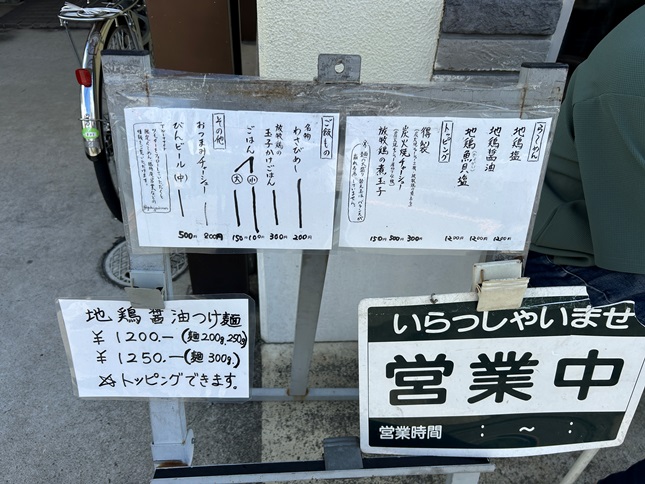 らぅめん
地鶏塩
地鶏醤油
地鶏魚貝塩
トッピング
鶏製
炭火焼チャーシュー
放牧鶏の煮玉子
1200円
1200円
1200円
300円
500円
150円
ご飯もの
名物
わさびめし
放牧鶏の
玉子かけごはん
ごはん
小
大
その他
おつまみチャーシュー
びんビール(中)
200円
300円
100円
150円
800円
500円
地鶏醤油つけ麺
¥1200.-(麺200g,250g)
¥1250.-(麺300g.)
☆トッピングできます。
いらっしゃいませ
営業中
営業時間 : 〜 :